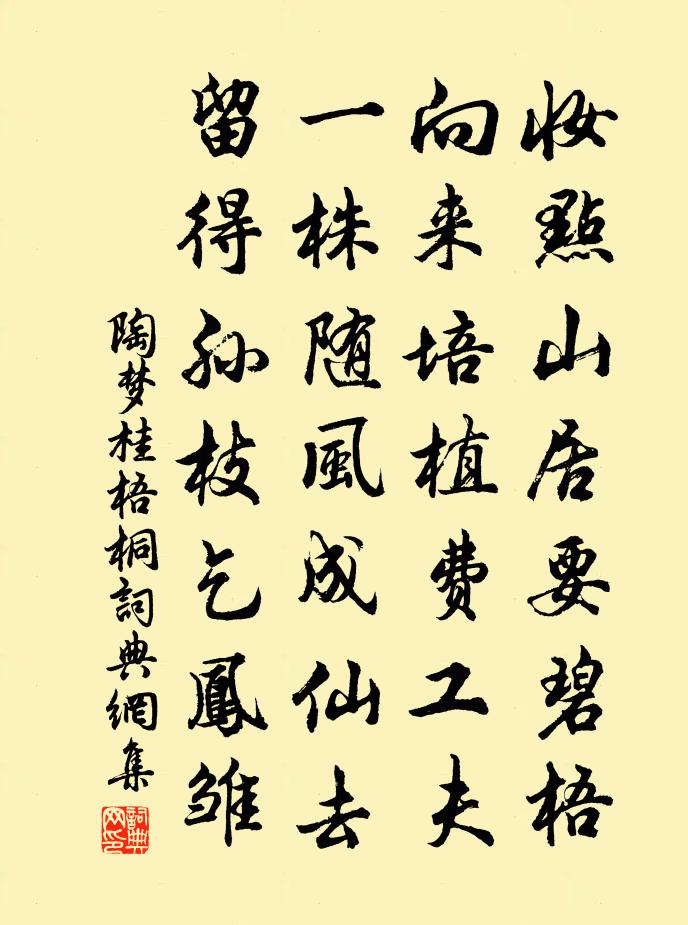 妆點山居要碧梧
向来培植費工夫
一株随風成仙去
留得孙枝乞鳳雏
陶梦桂梧桐詞典網集
詞典网印